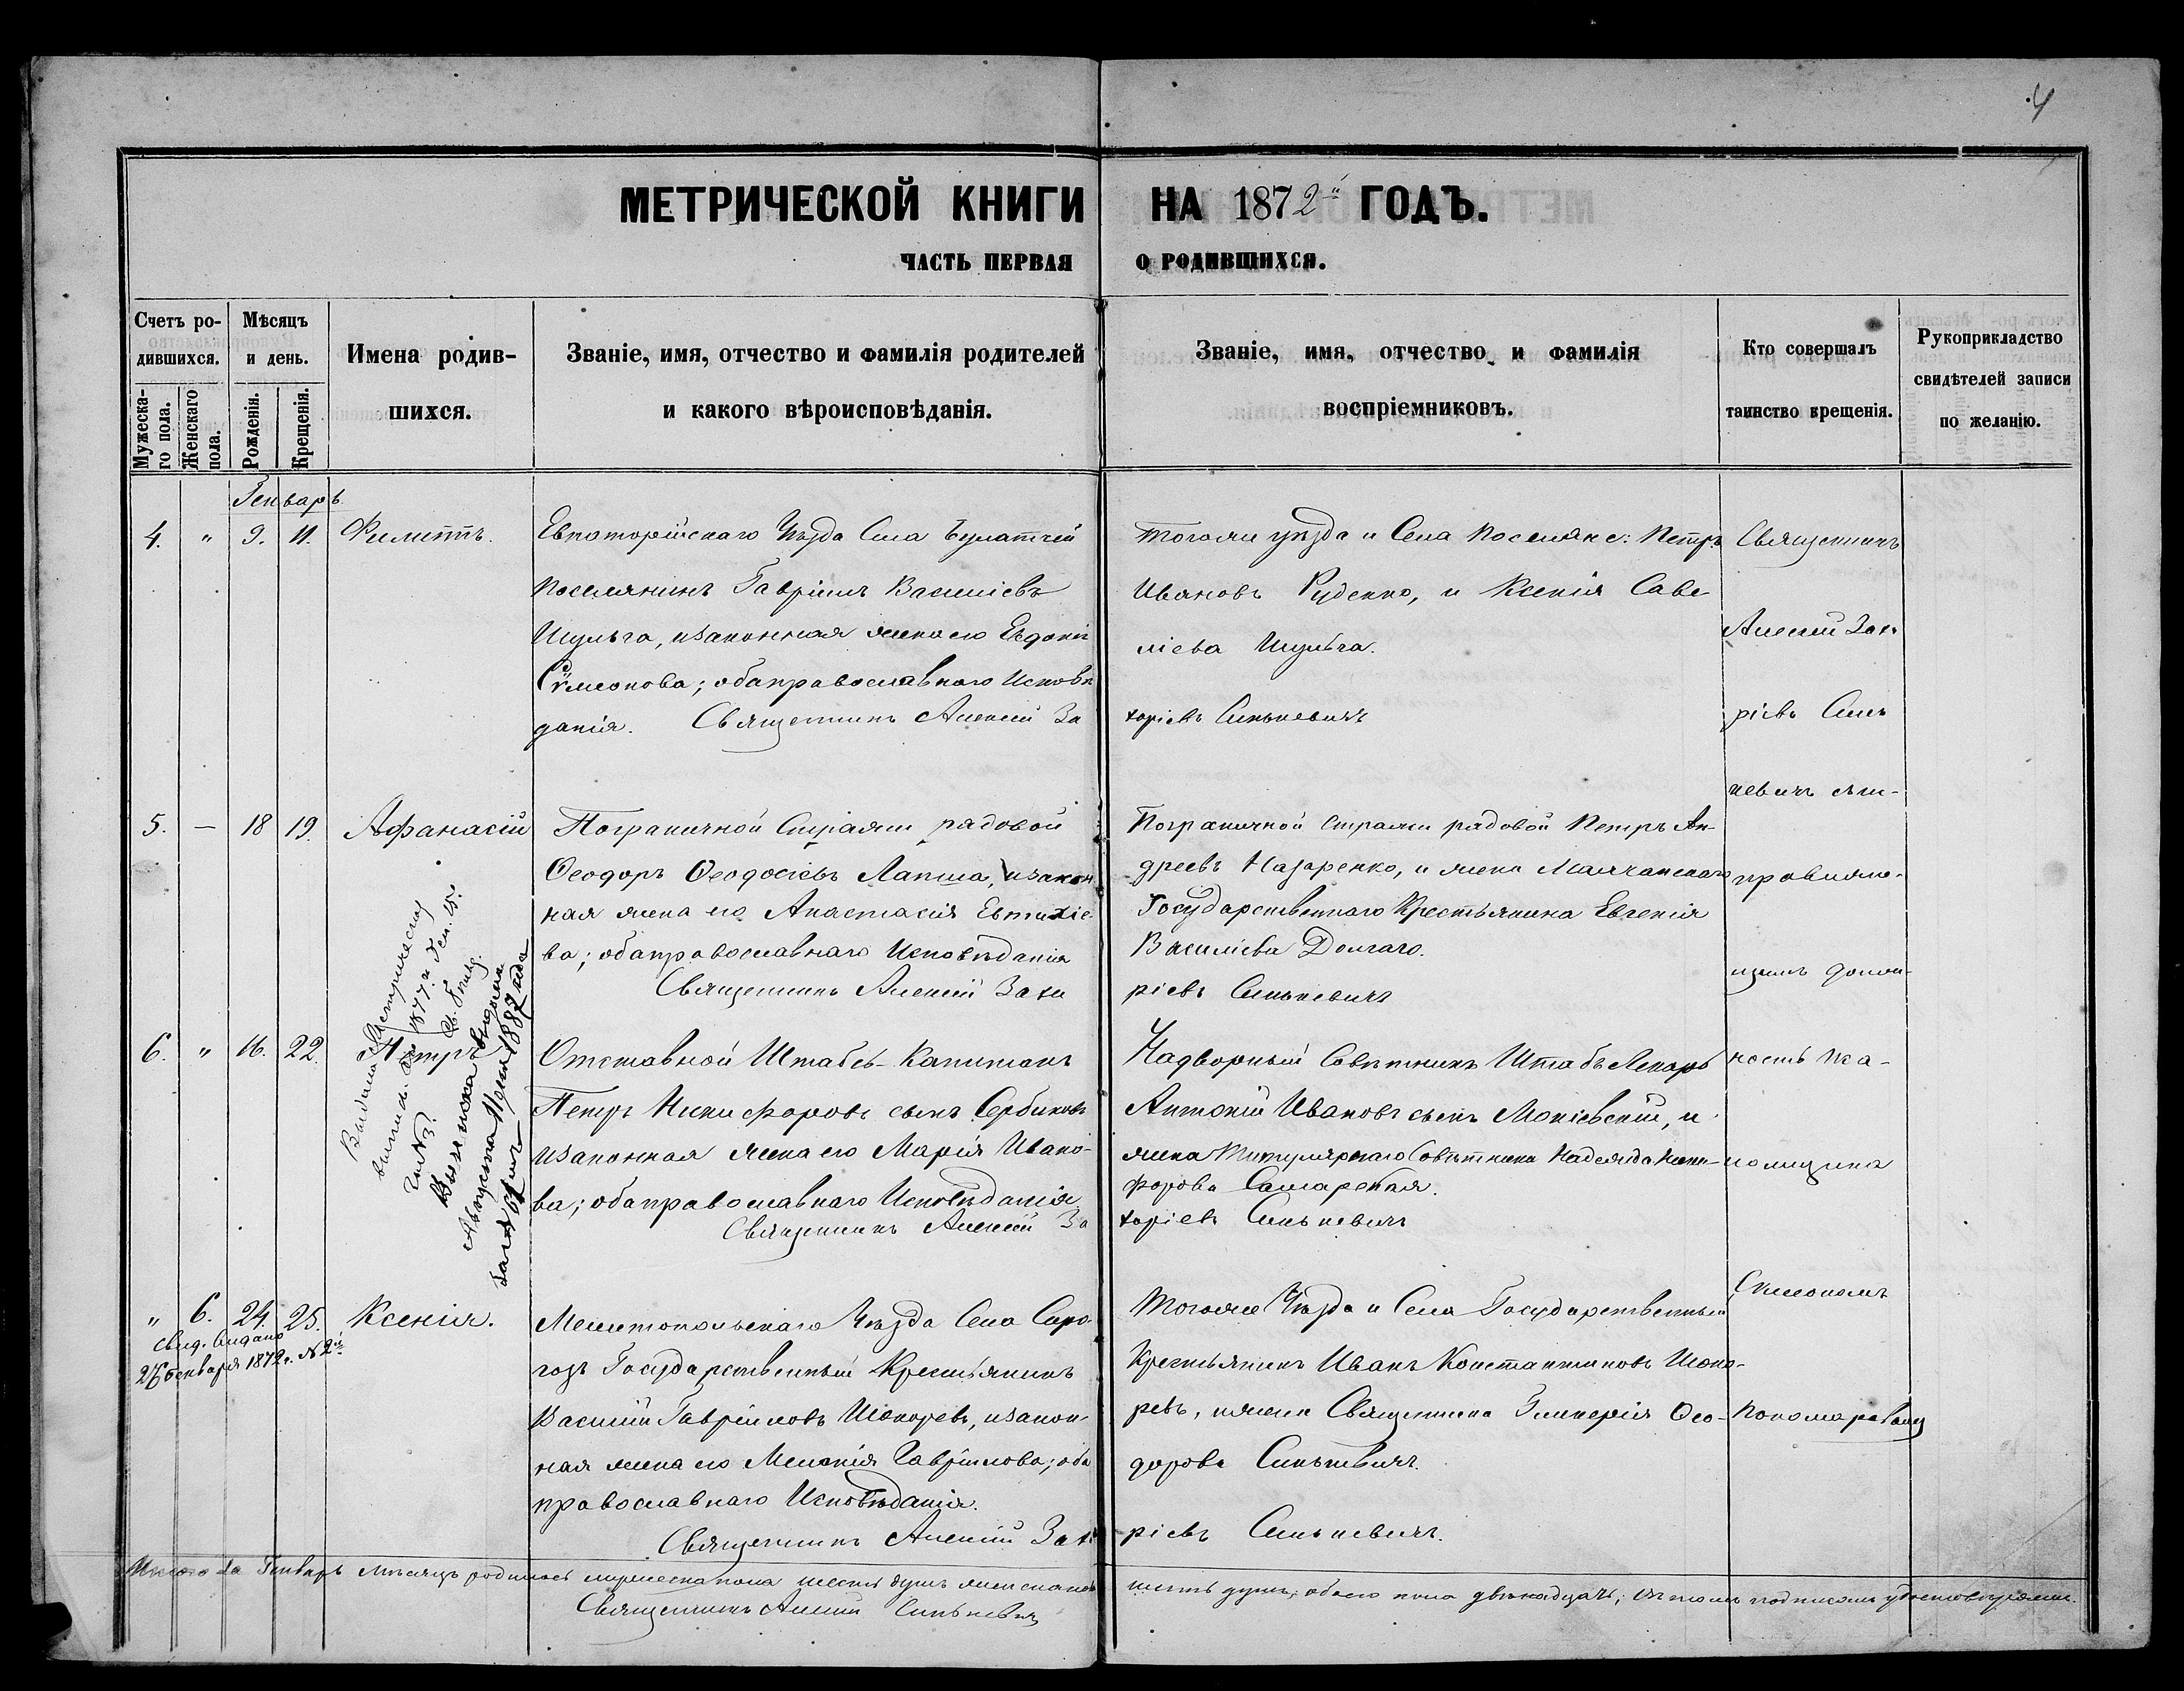 4
МЕТРИЧЕСКОЙ КНИГИ НА 1872й ГОДЪ.
ЧАСТЬ ПЕРВАЯ О РОДИВШИХСЯ.
Счетъ ро-
дившихся.
Мужеска-
го пола.
Женскаго
пола.
Мѣсяцъ
и день.
Рожденія.
Крещенія.
Имена родив-
шихся.
Званіе, имя, отчество и фамилія родителей
и какого вѣроисповѣданія.
Званіе, имя, отчество и фамилія
воспріемниковъ.
Кто совершалъ
таинство крещенія.
Рукоприкладство
свидѣтелей записи
по желанію.
Генварь
4. " 9. 11. Филиппъ.
Евпаторійскаго Уѣзда Села
Поселянинъ Гавріилъ Василіевъ
Шульга, изаконная жена его Евдокія
Сѵмеонова; оба православнаго Исповѣ
данія. Священникъ Алексій За
Тогожи уѣзда и Села Поселяне: Петръ
Ивановъ Руденко, и Ксенія Саве
ліева Шульга.
харіевъ Синькевичъ
5. — 18 19. Афанасій
Пограничной Стражи рядовой
Ѳеодоръ Ѳеодосіевъ Лапша, изакон
ная жена его Анастасія Евтихіе
ва; оба православнаго Исповѣданія
Священникъ Алексій Заха
Пограничной Стражи рядовой Петръ Ан-
дреевъ Назаренко, и жена
Государственнаго Крестьянина Евгенія
Василіева Долгаго.
ріевъ Синькевичъ
6. " 16. 22. Петръ
Отставной Штабсъ-Капитанъ
Петръ Никифоровъ сынъ Сербиновъ
изаконная жена его Марія Ивано-
ва; оба православнаго Исповѣданія
Священникъ Алексій За
Надворный Совѣтникъ Штабъ Лекарь
Антоній Ивановъ сынъ Моніевскій, и
жена Титулярнаго Совѣтника Надежда Ники-
форова Самарская.
харіевъ Синькевичъ
Выдана Метрическая
выпись 1877 г. Ген. 15.
за №3.
Выписка выдана
Августа 11 дня 1887 года
" 6. 24. 25. Ксенія.
Свид. выдано
26 Генваря 1872 г. №2й
Мелитопольскаго Уѣзда Села Серо-
гозъ Государственный Крестьянинъ
Василій Гавріиловъ Шокоревъ, изакон-
ная жена его Меланія Гавріилова; оба
православнаго Исповѣданія.
Священникъ Алексій Заха
Тогоже Уѣзда и Села Государственный
Крестьянинъ Иванъ Константиновъ Шоко-
ревъ, ижена Священника Гликерія Ѳео-
дорова Синькевичъ.
ріевъ Синькевичъ.
Священникъ
Алексій Заха
ріевъ Синь
кевичъ съ ис-
правляю-
щимъ долж-
ность пса-
ломщика
Сѵмеономъ
Пономаревымъ
Итого въ Генварь мѣсяцъ родилось мужеска пола шесть душъ женска пола
шесть душъ, обоего пола двѣнадцать; въ чемъ подписомъ удостовѣряемъ.
Священникъ Алексій Синькевичъ